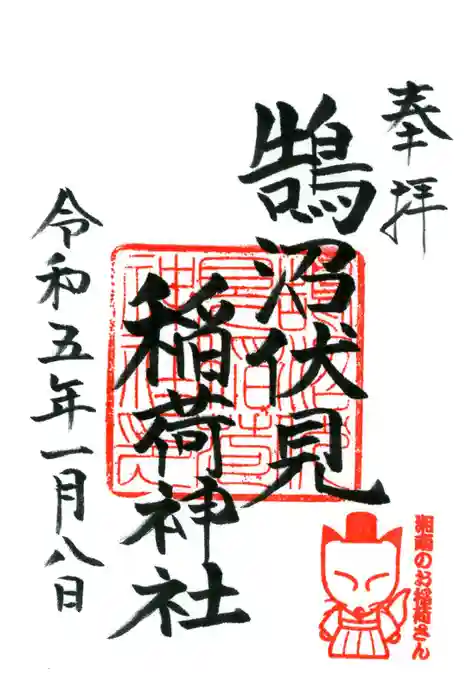 奉拝
鵠沼伏見
稲荷神社
令和五年一月八日
湘南のお稲荷さん